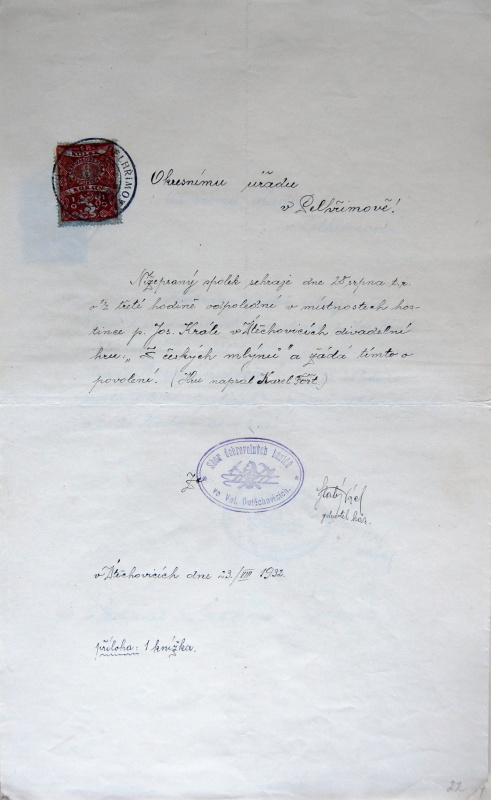 PELHŘIMOV
Okresnímu úřadu
v Pelhřimově!
Nížepsaný spolek sehraje dne 28 srpna t.r.
o ½ třetí hodině odpolední v místnostech hos-
tince p. Jos. Krále v Útěchovicích divadelní
hru: „Z českých mlýnů" a žádá tímto o
povolení. (Hru napsal Karel Fořt.)
Sbor dobrovolných hasičů
ve Vel. Outěchovicích.
v Útěchovicích dne 23./VIII 1932.
příloha: 1 knížka.
22